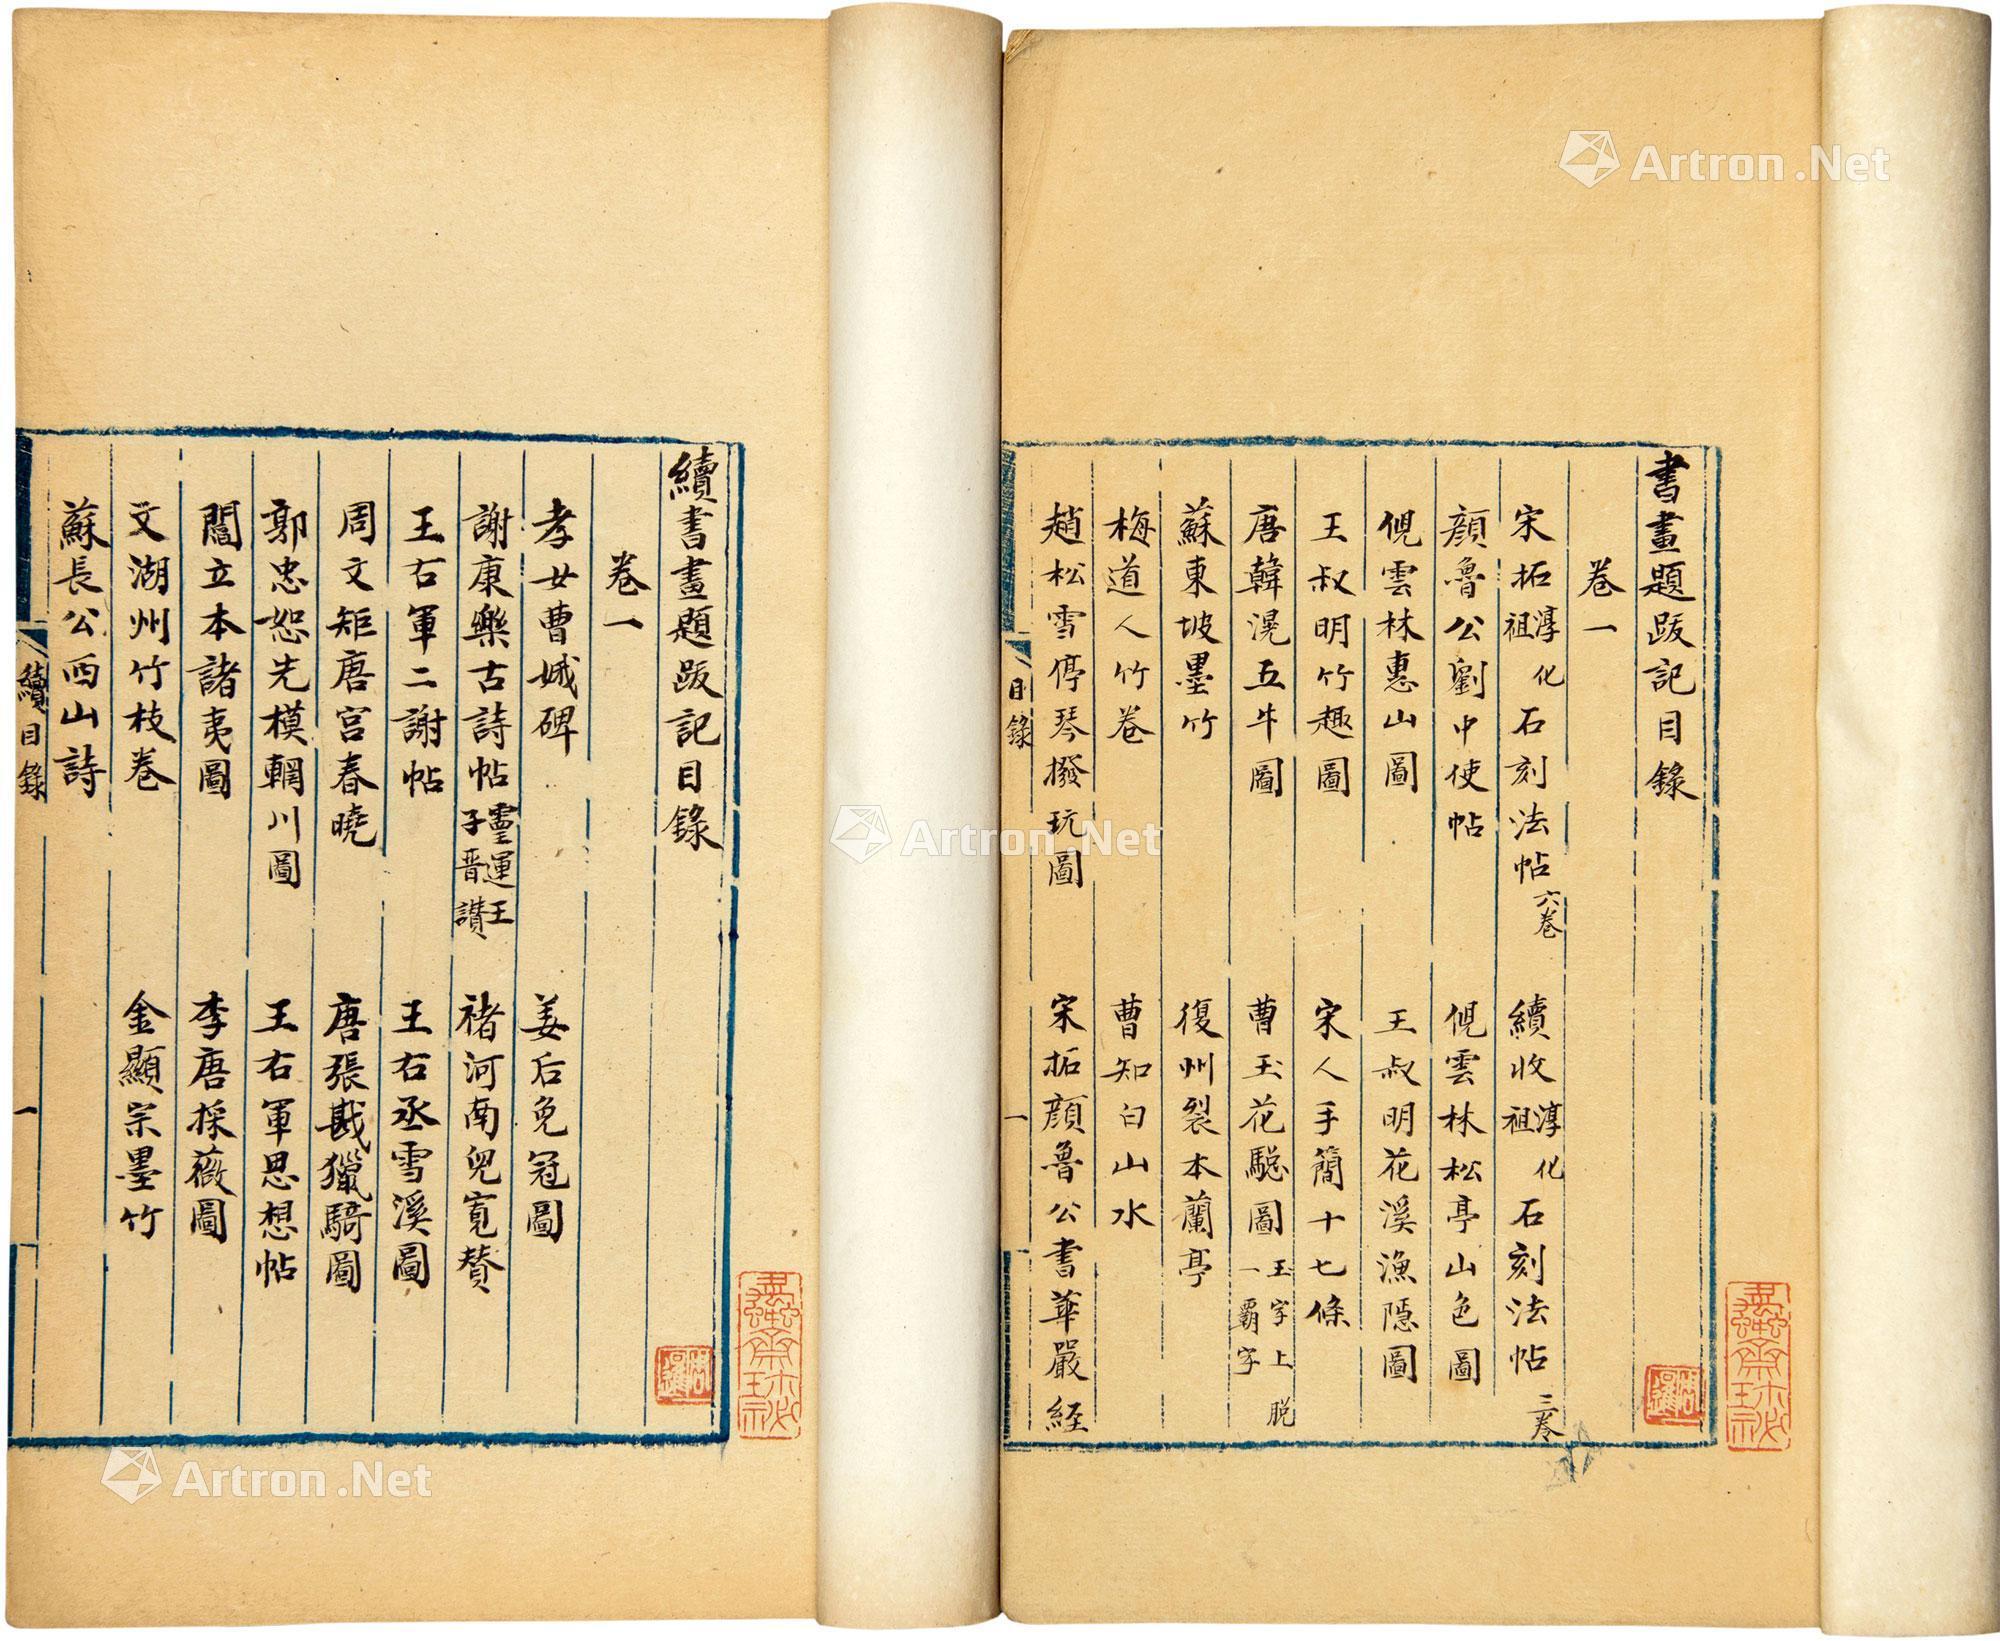 書畫題跋記目錄
卷一
宋拓淳化祖石刻法帖六卷 續收淳化祖石刻法帖三卷
顔魯公劉中使帖 倪雲林松亭山色圖
倪雲林惠山圖 王叔明花溪漁隱圖
王叔明竹趣圖 宋人手簡十七條
唐韓滉五牛圖 曹玉花驄圖玉字上脱一覇字
蘇東坡墨竹 復州裂本蘭亭
梅道人竹卷 曹知白山水
趙松雪停琴撥玩圖 宋拓顔魯公書華嚴経
目錄
一
續書畫題跋記目錄
卷一
孝女曹娥碑 姜后免冠圖
謝康樂古詩帖靈運王子晋讃 褚河南兒寛賛
王右軍二謝帖 王右丞雪溪圖
周文矩唐宮春曉 唐張戡獵騎圖
郭忠恕先模輞川圖 王右軍思想帖
閻立本諸夷圖 李唐採薇圖
文湖州竹枝卷 金顯宗墨竹
蘇長公西山詩
續目錄
一
Artron.Net
Artron.Net
Artron.Net